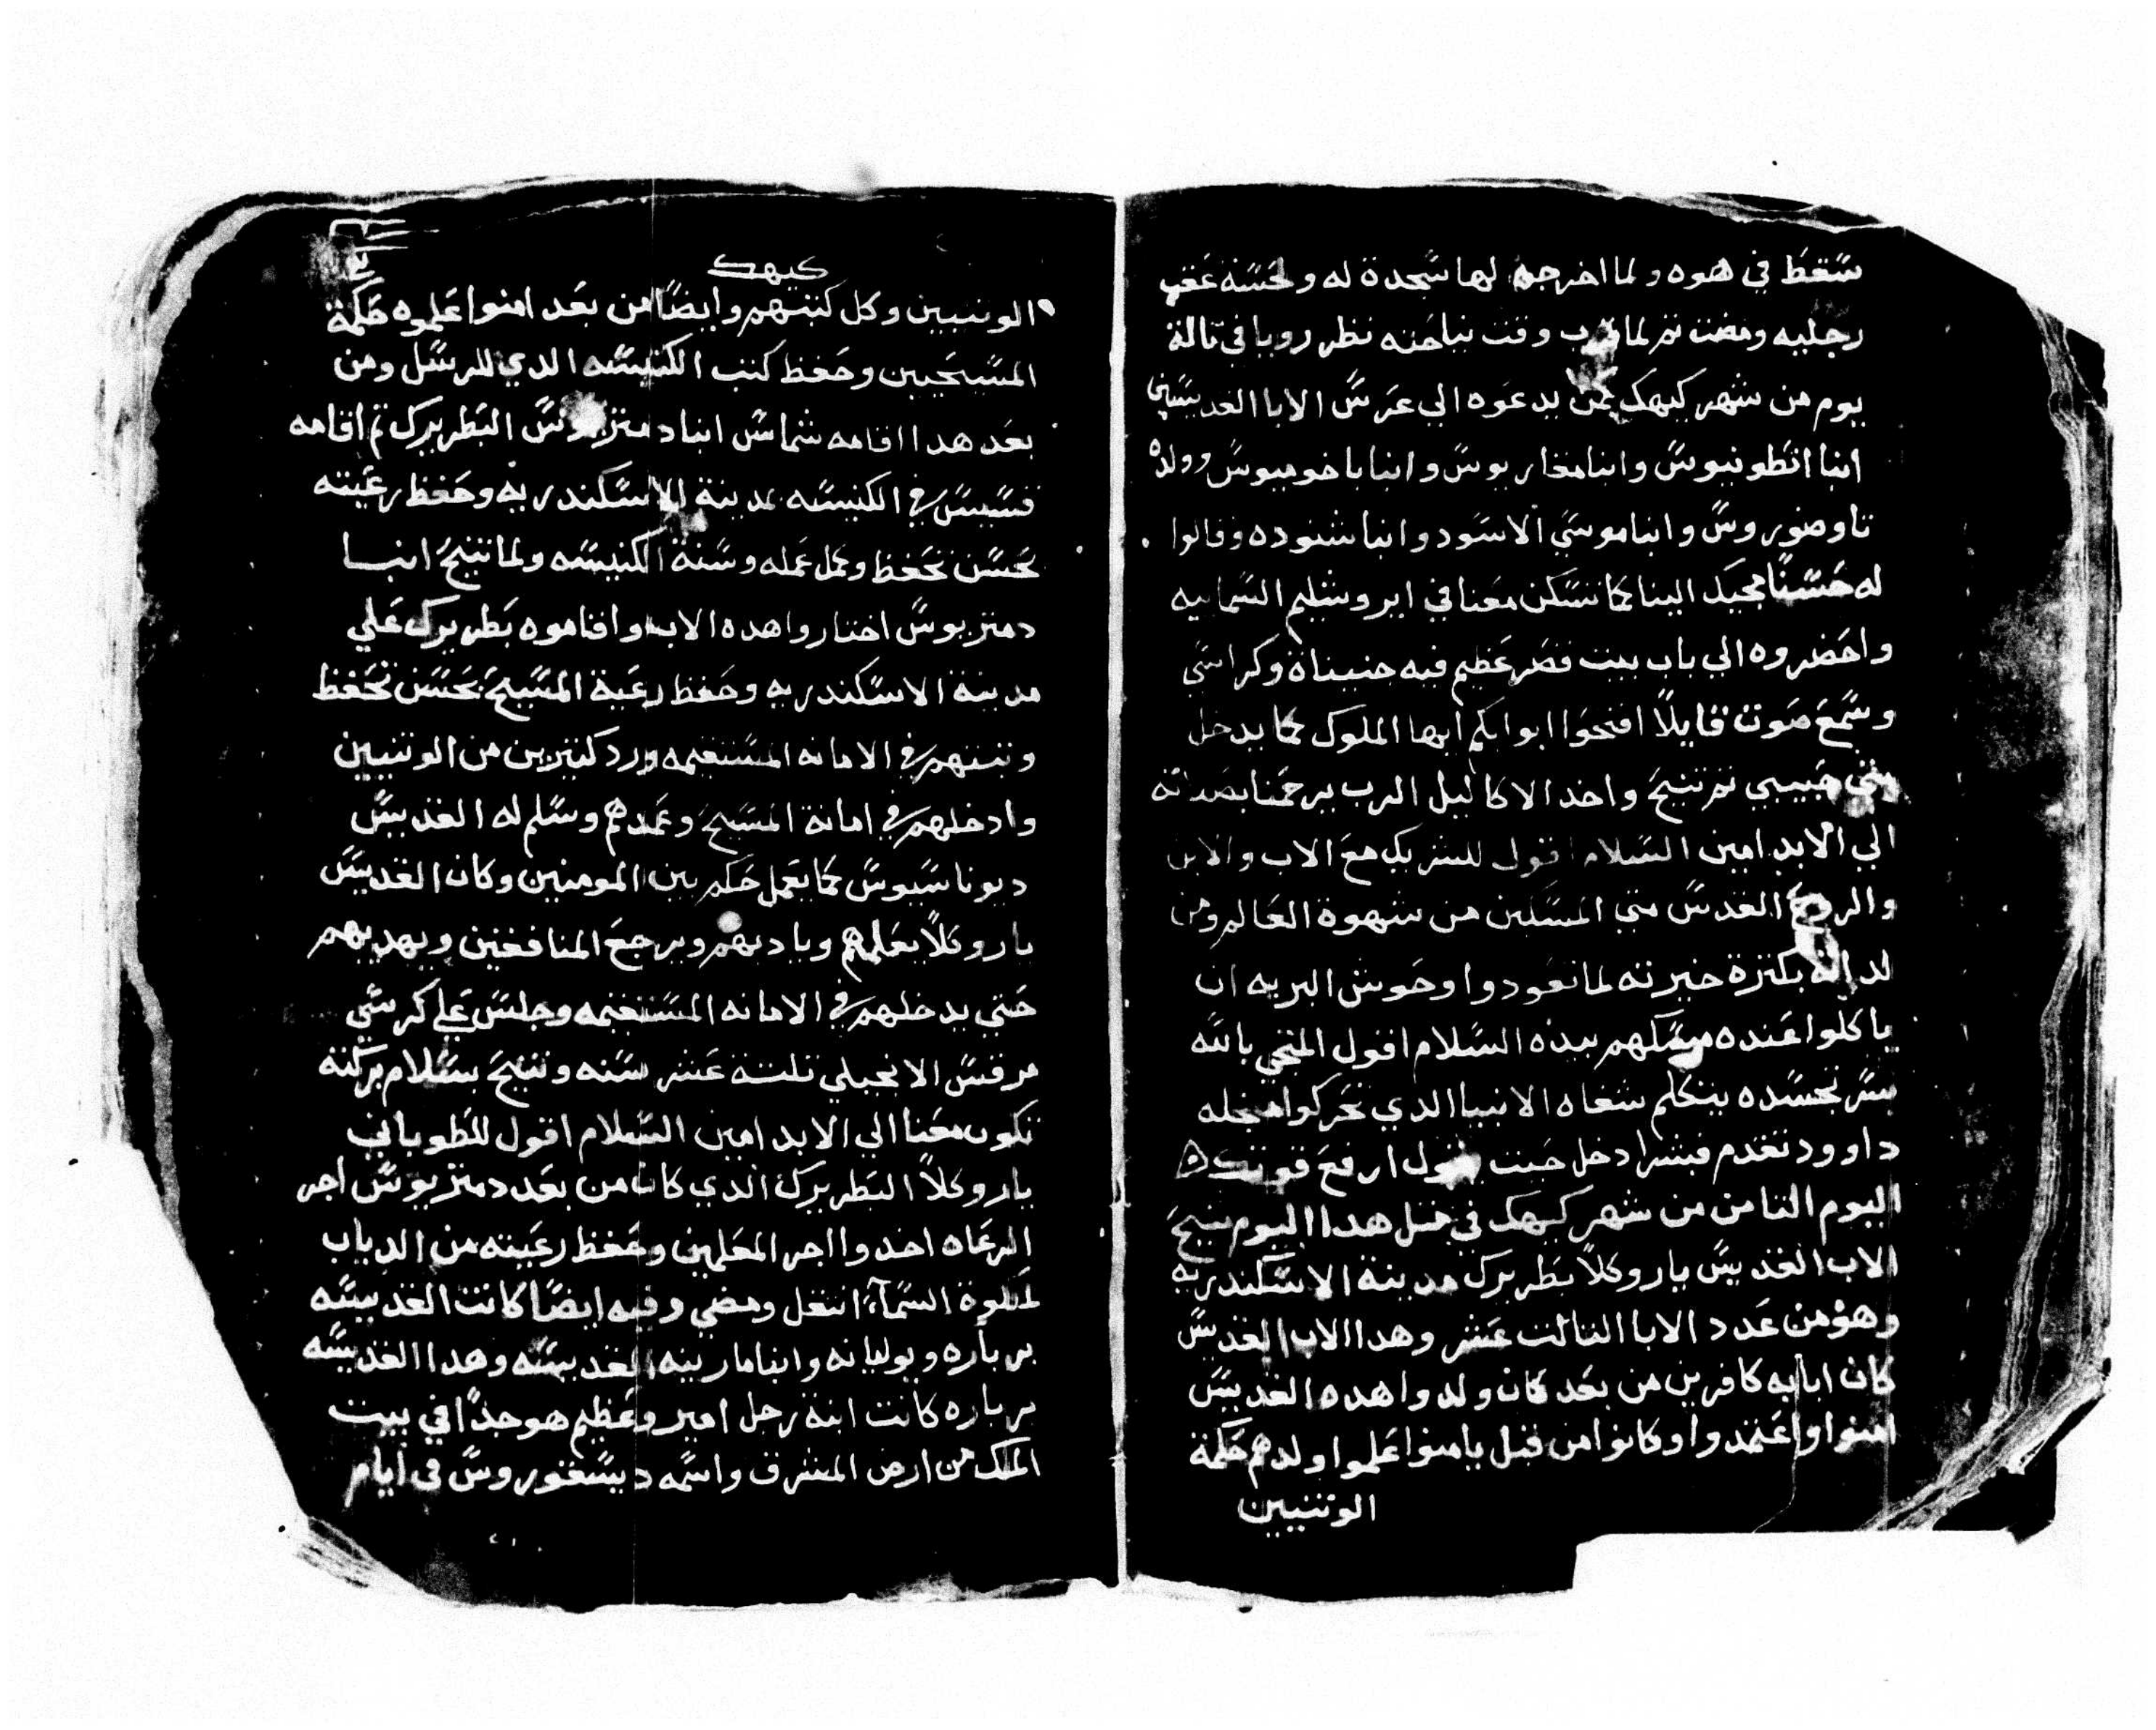 سقط في هوه ولما اخرجهم لها سجدة له ولحسنة عقب
رجليه ومضت تم لما قرب وقت نياحته نظر رويا في تالة
يوم من شهر كيهك كمن يدعوه الي عرش الابا القديسين
انبا انطونيوس وانبا مقاريوس وانبا باخوميوس وولده
تاوضوروس وانبا موسي الاسود وانبا شنوده وقالوا
له حسنا مجيك الينا كما تسكن معنا في ايروشليم السماييه
واحضروه الي باب بيت قصر عظيم فيه جنيناة وكراسي
وسمع صوت قايلا افتحوا ابوابكم ايها الملوك كما يدخل
بيتي حبيبي تم تنيح واخد الاكاليل الرب يرحمنا بصلاته
الي الابد امين السلام اقول للشريك مع الاب والابن
والروح القدس متي المسكين من شهوة العالم ومن
لداته بكترة حيرته لما تعودوا وحوش البريه ان
ياكلوا عنده مسكهم بيده السلام اقول المتجي بالله
سر تجسده بيتكلم شفاه الانبيا الدي تحركوا من جله
داوود تقدم فبشر ادخل حيت يقول ارفع قوتك
اليوم التامن من شهر كيهك في متل هدا اليوم تنيح
الاب القديس ياروكلا بطريرك مدينة الاسكندريه
وهو من عدد الابا التالت عشر وهدا الاب القديس
كان ابايه كافرين من بعد كان ولدوا هده القديس
امنوا واعتمدوا وكانوا من قبل يامنوا علموا ولدهم حكمة
الوتنيين
كيهك
الوتنيين وكل كتبهم وايضا من بعد امنوا علموه حكمة
المسيحيين وحفظ كتب الكنيسه الدي للرسل ومن
بعد هدا اقامه شماس انبا دمتريوس البطريرك تم اقامه
قسيس في الكنيسه بمدينة الاسكندريه وحفظ رعيته
بحسن تحفظ وكمل عمله وسنة الكنيسه ولما تنيح انبا
دمتريوس اختاروا هده الاب واقاموه بطريرك علي
مدينة الاسكندريه وحفظ رعية المسيح بحسن تحفظ
وتبتهم في الامانه المستقيمه ورد كتيرين من الوتنيين
وادخلهم في امانة المسيح وعمدهم وسلم له القديس
ديوناسيوس كما يعمل حكم بين المومنين وكان القديس
ياروكلا يعلمهم ويادبهم ويرجع المنافقين ويهديهم
حتي يدخلهم في الامانه المستقيمه وجلس علي كرسي
مرقس الانجيلي تلتة عشر سنه وتنيح بسلام بركته
تكون معنا الي الابد امين السلام اقول للطوباني
ياروكلا البطريرك الدي كان من بعد دمتريوس اجر
الرعاه اخد واجر المعلمين وحفظ رعيته من الدياب
لملوة السمآء انتقل ومضي وفيه ايضا كانت القديسه
برباره ويوليانه وانبا مارينه القديسه وهدا القديسه
برباره كانت ابنة رجل امير وعظيم هو جدا في بيت
الملك من ارض المشرق واسمه ديسقوروس في ايام